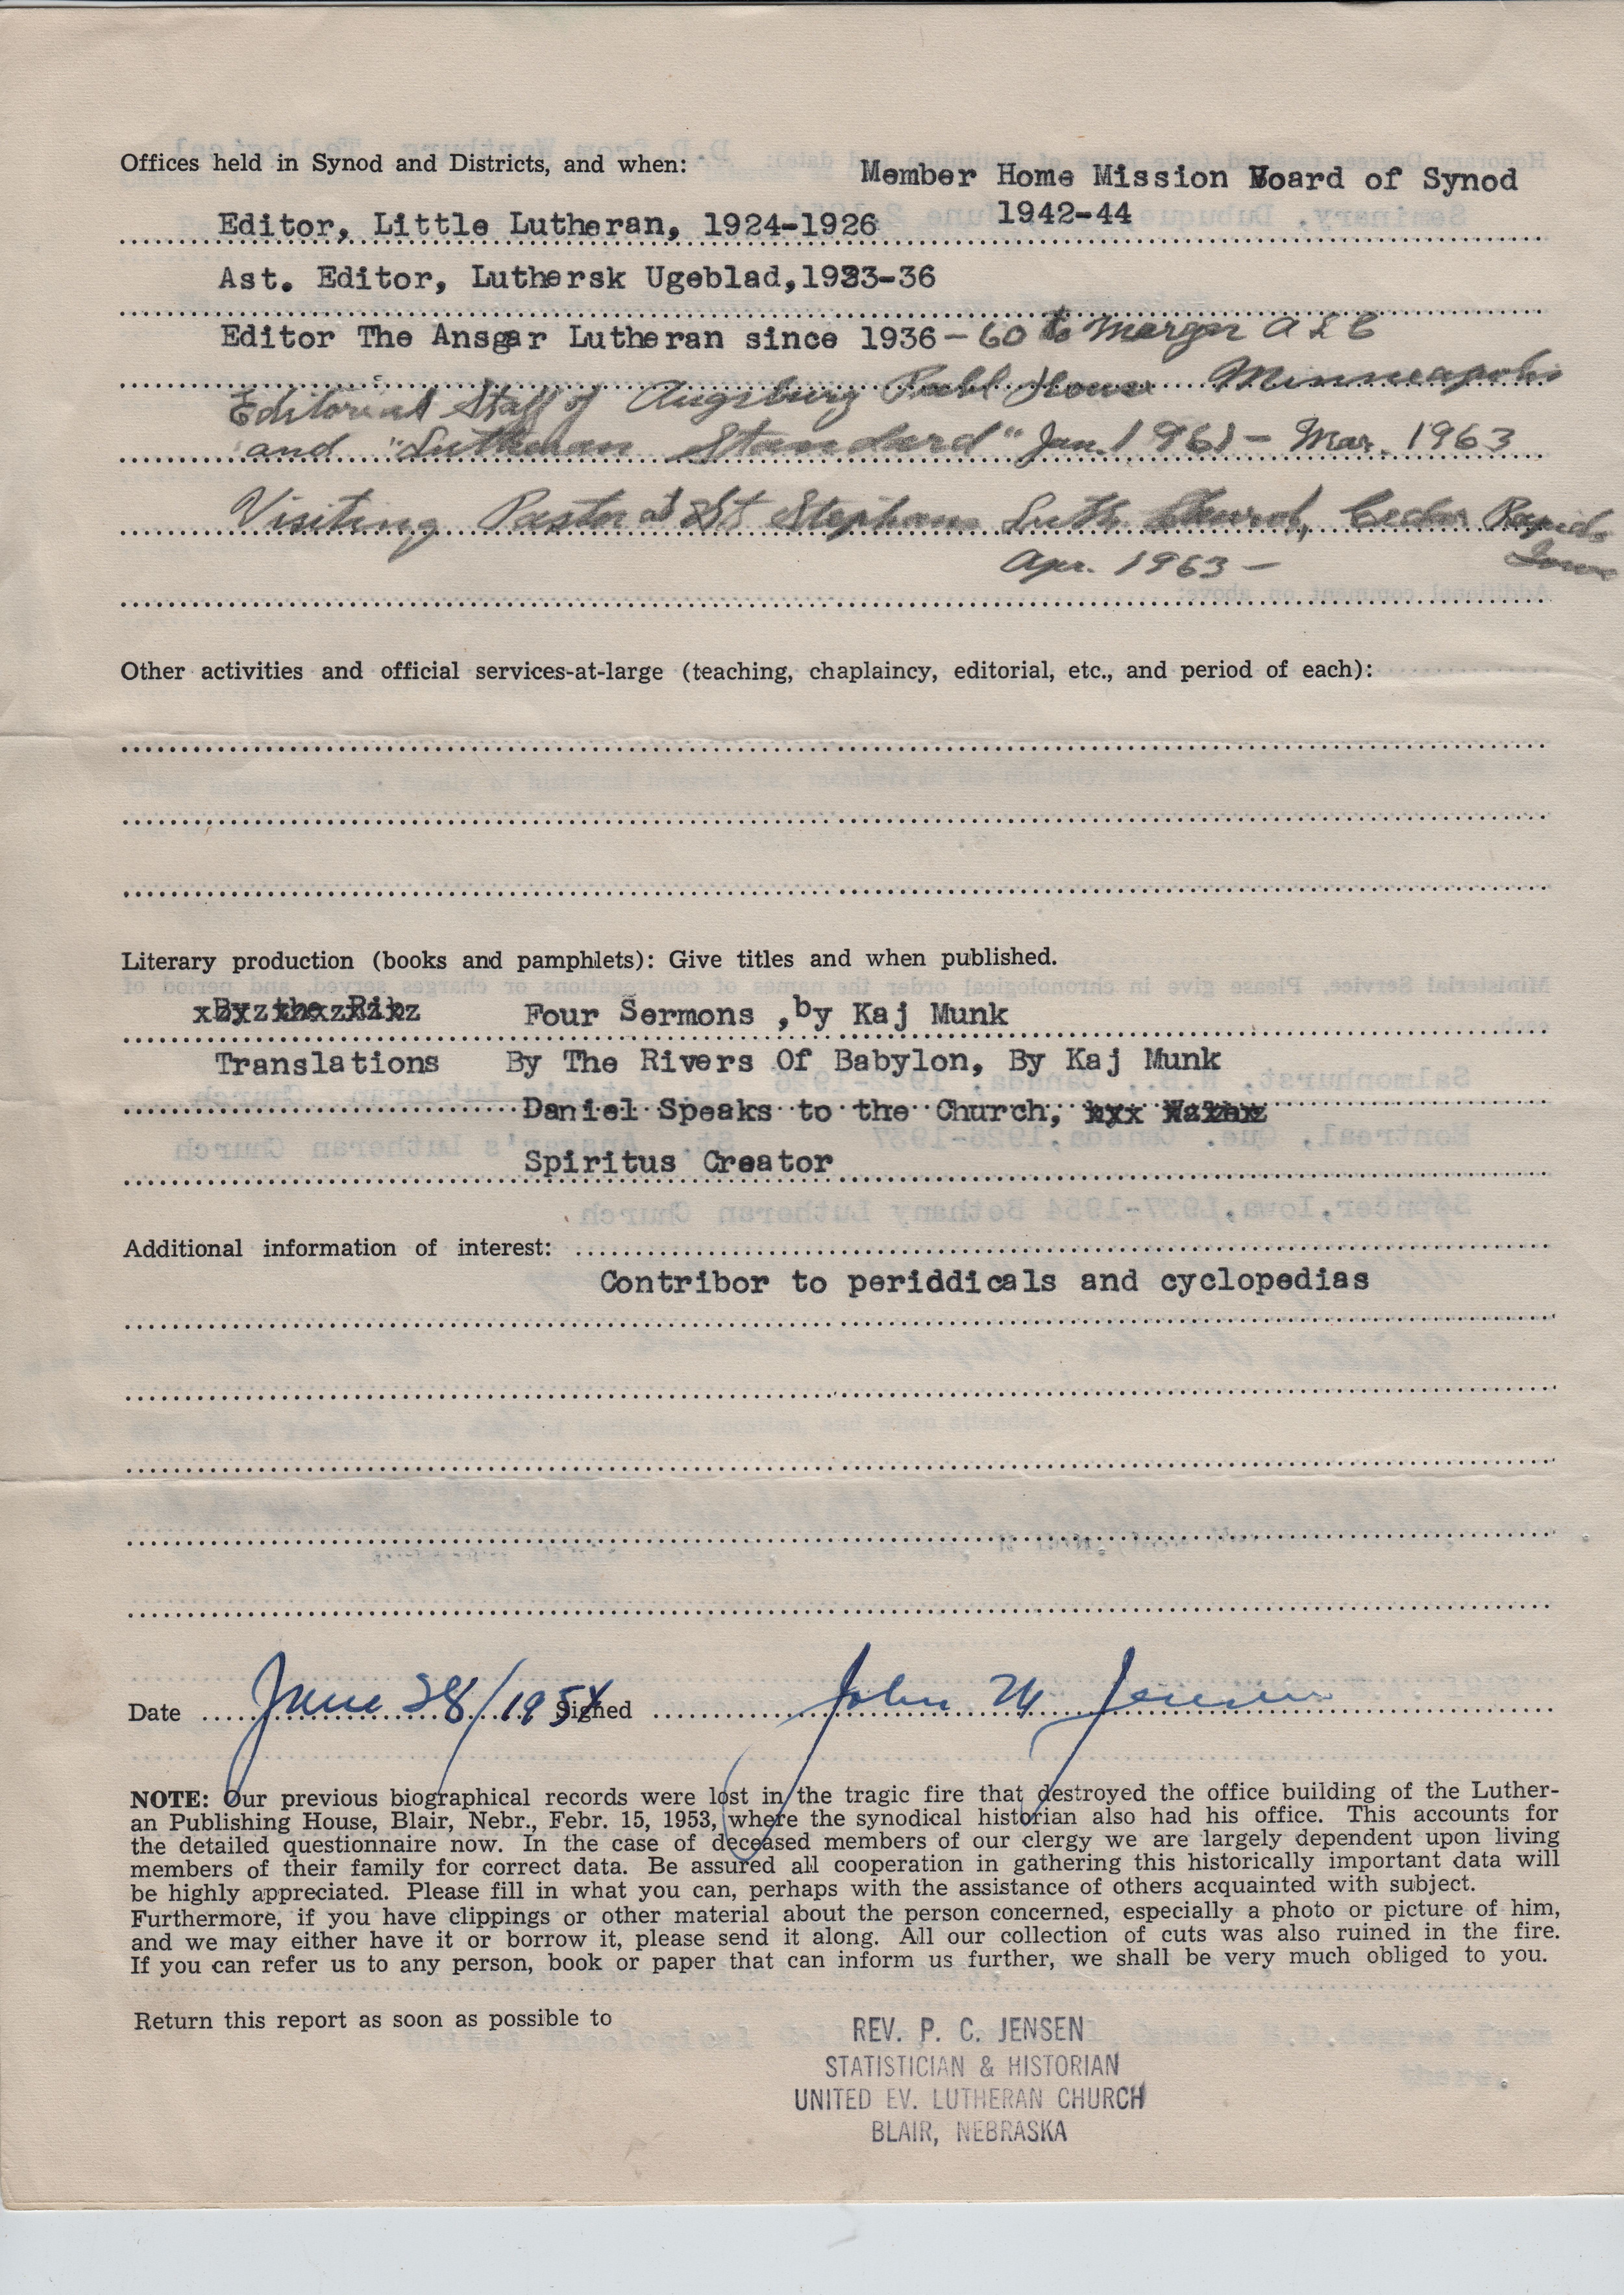 Offices held in Synod and Districts, and when:
Member Home Mission Board of Synod
1942-44
Editor, Little Lutheran, 1924-1926
Ast. Editor, Luthersk Ugeblad,1933-36
Editor The Ansgar Lutheran since 1936 - 60 to Merger A L C
Editorial Staff of Augsburg Publ House Minneapolis
and "Lutheran Standard" Jan. 1961 - Mar. 1963
Visiting Pastor at St Stephans Luth Church, Cedar Rapids
Iowa
Apr. 1963 -
Other activities and official services-at-large (teaching, chaplaincy, editorial, etc., and period of each):
Literary production (books and pamphlets): Give titles and when published.
Four Sermons ,by Kaj Munk
Translations By The Rivers Of Babylon, By Kaj Munk
Daniel Speaks to the Church,
Spiritus Creator
Additional information of interest:
Contribor to periddicals and cyclopedias
Date June 28/1954 Signed John M Jensen
NOTE: Our previous biographical records were lost in the tragic fire that destroyed the office building of the Luther-
an Publishing House, Blair, Nebr., Febr. 15, 1953, where the synodical historian also had his office. This accounts for
the detailed questionnaire now. In the case of deceased members of our clergy we are largely dependent upon living
members of their family for correct data. Be assured all cooperation in gathering this historically important data will
be highly appreciated. Please fill in what you can, perhaps with the assistance of others acquainted with subject.
Furthermore, if you have clippings or other material about the person concerned, especially a photo or picture of him,
and we may either have it or borrow it, please send it along. All our collection of cuts was also ruined in the fire.
If you can refer us to any person, book or paper that can inform us further, we shall be very much obliged to you.
Return this report as soon as possible to
REV. P. C. JENSEN
STATISTICIAN & HISTORIAN
UNITED EV. LUTHERAN CHURCH
BLAIR, NEBRASKA